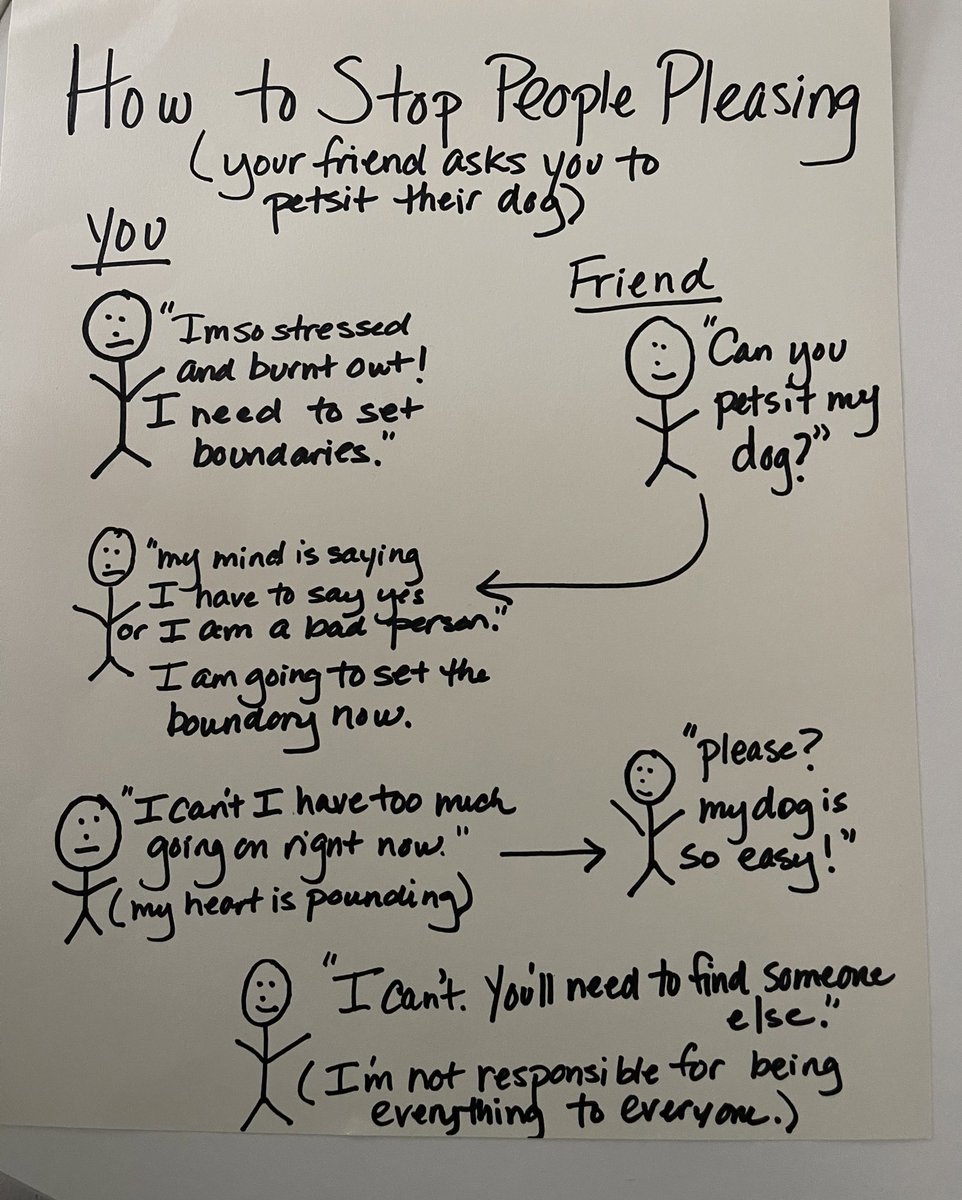 How to Stop People Pleasing
(your friend asks you to
petsit their dog)
You
"I'm so stressed
and burnt out!
I need to set
boundaries."
Friend
"Can you
petsit my
dog?"
"my mind is saying
I have to say yes
or I am a bad person."
I am going to set the
boundary now.
"I can't I have too much
going on right now."
(my heart is pounding)
"please?
my dog is
so easy!"
"I can't. You'll need to find someone
else."
(I'm not responsible for being
everything to everyone.)